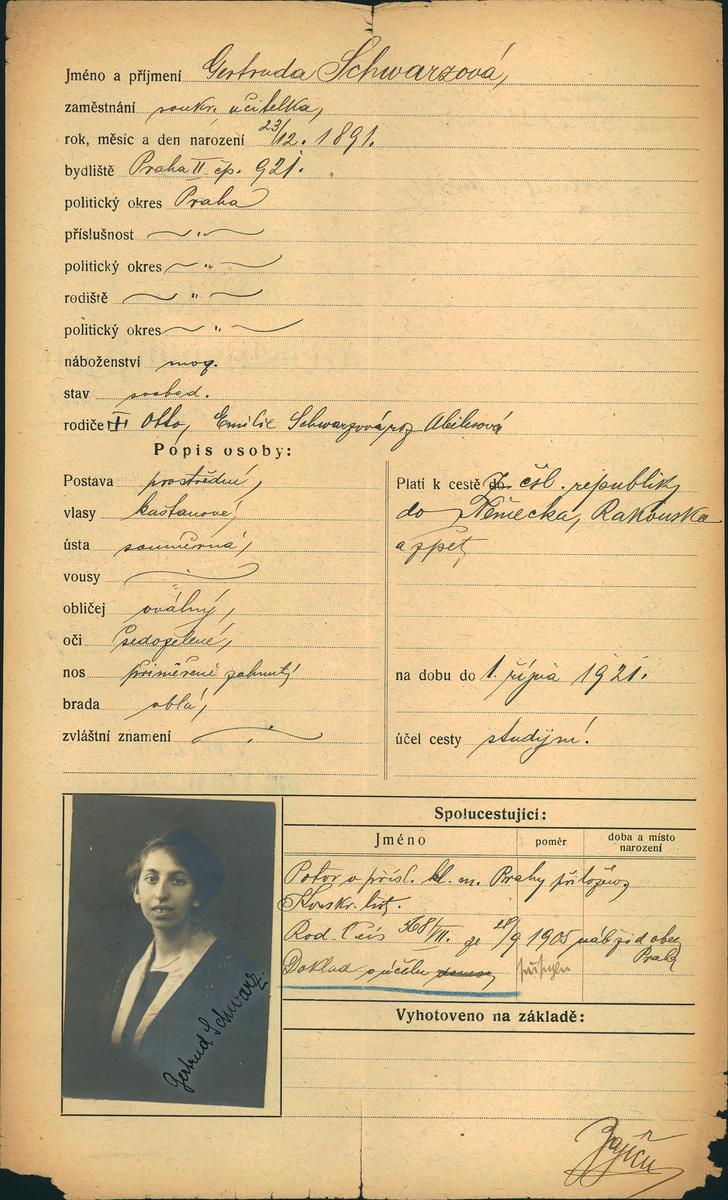 Jméno a příjmení Gertruda Schwarzová,
zaměstnání soukr. učitelka,
rok, měsíc a den narození 23/12. 1891.
bydliště Praha II čp. 921.
politický okres Praha
příslušnost — " —
politický okres — " —
rodiště — " —
politický okres — " —
náboženství moj.
stav svobod.
rodiče Otto, Emilie Schwarzová roz Abelesová
Popis osoby:
Postava prostřední,
vlasy kaštanové,
ústa souměrná,
vousy
obličej oválný,
oči šedozelené,
nos přiměřeně zahnutý
brada oblá,
zvláštní znamení
Platí k cestě do čsl. republiky
do Německa, Rakouska
a zpět,
na dobu do 1. října 1921.
účel cesty studijní.
Spolucestující:
Jméno poměr doba a místo narození
Potvr o přísl. hl. m. Prahy přiloženo
Konskr. list.
Rod. čís 368/II. ze 28/9 1905 náb žid obec
Praha
Doklad o účelu
Vyhotoveno na základě:
Gertrud Schwarz